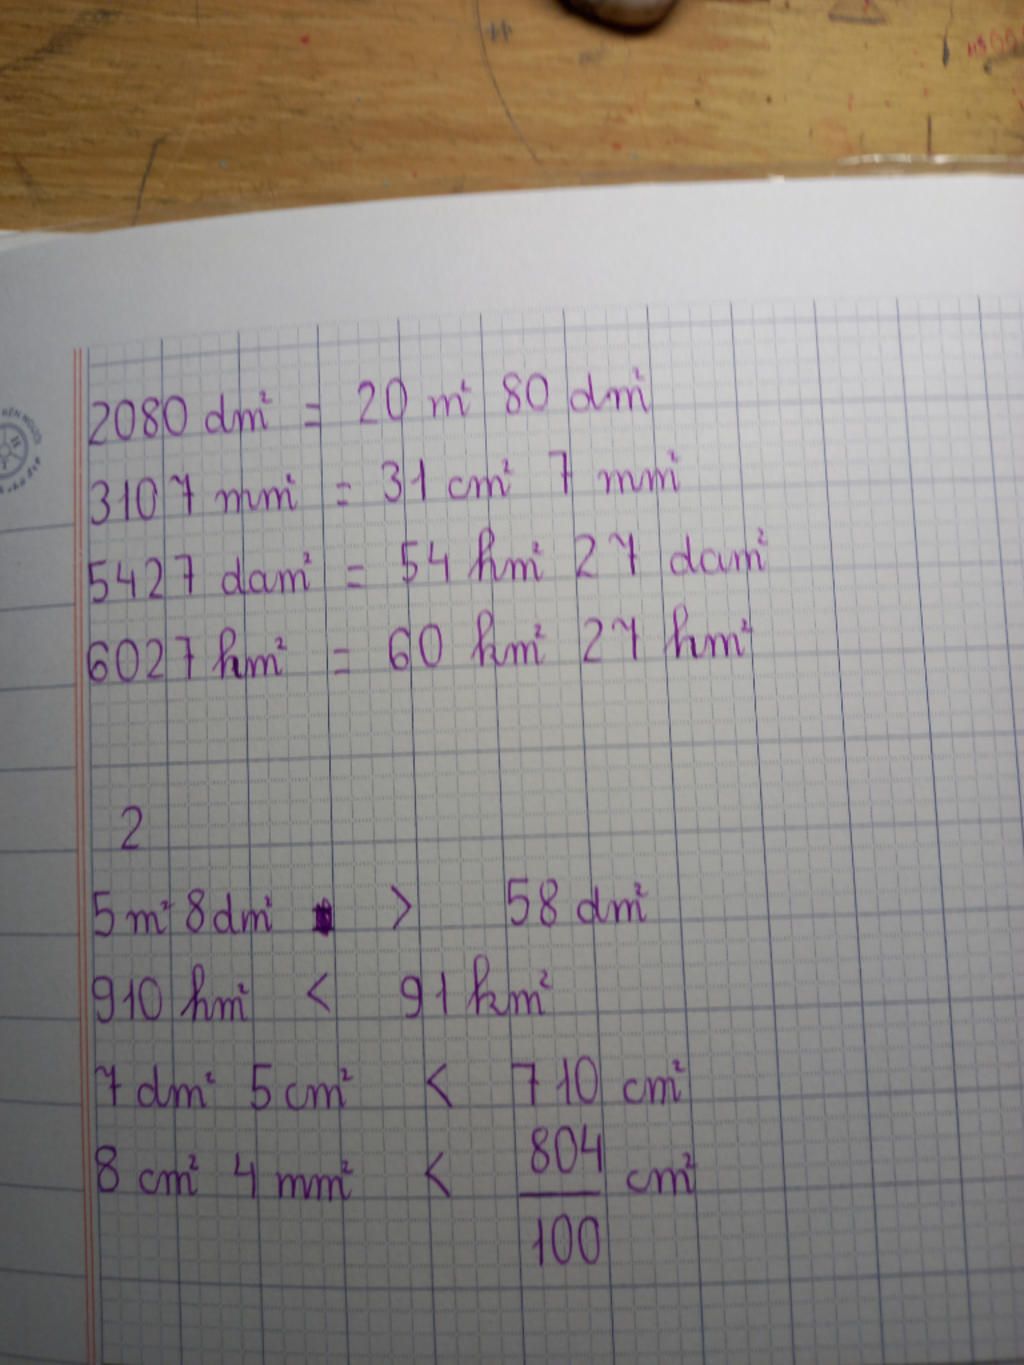 2080 dm² = 20 m² 80 dm²
3107 mm² = 31 cm² 7 mm²
5427 dam² = 54 hm² 27 dam²
6027 hm² = 60 hm² 27 hm²
2
5 m² 8 dm² > 58 dm²
910 hm² < 91 km²
7 dm² 5 cm² < 710 cm²
8 cm² 4 mm² < 804/100 cm²